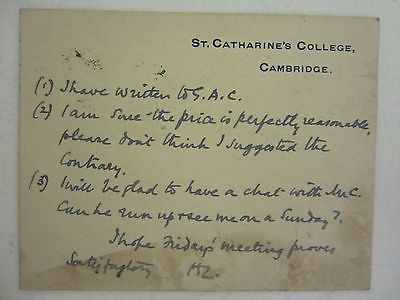 ST. CATHARINE'S COLLEGE,
CAMBRIDGE.
(1) I have written to G.A.C.
(2) I am sure the price is perfectly reasonable,
please don't think I suggested the
contrary.
(3) I will be glad to have a chat with McC.
Can he run up & see me on a Sunday?
I hope Friday's meeting proves
Satisfactory